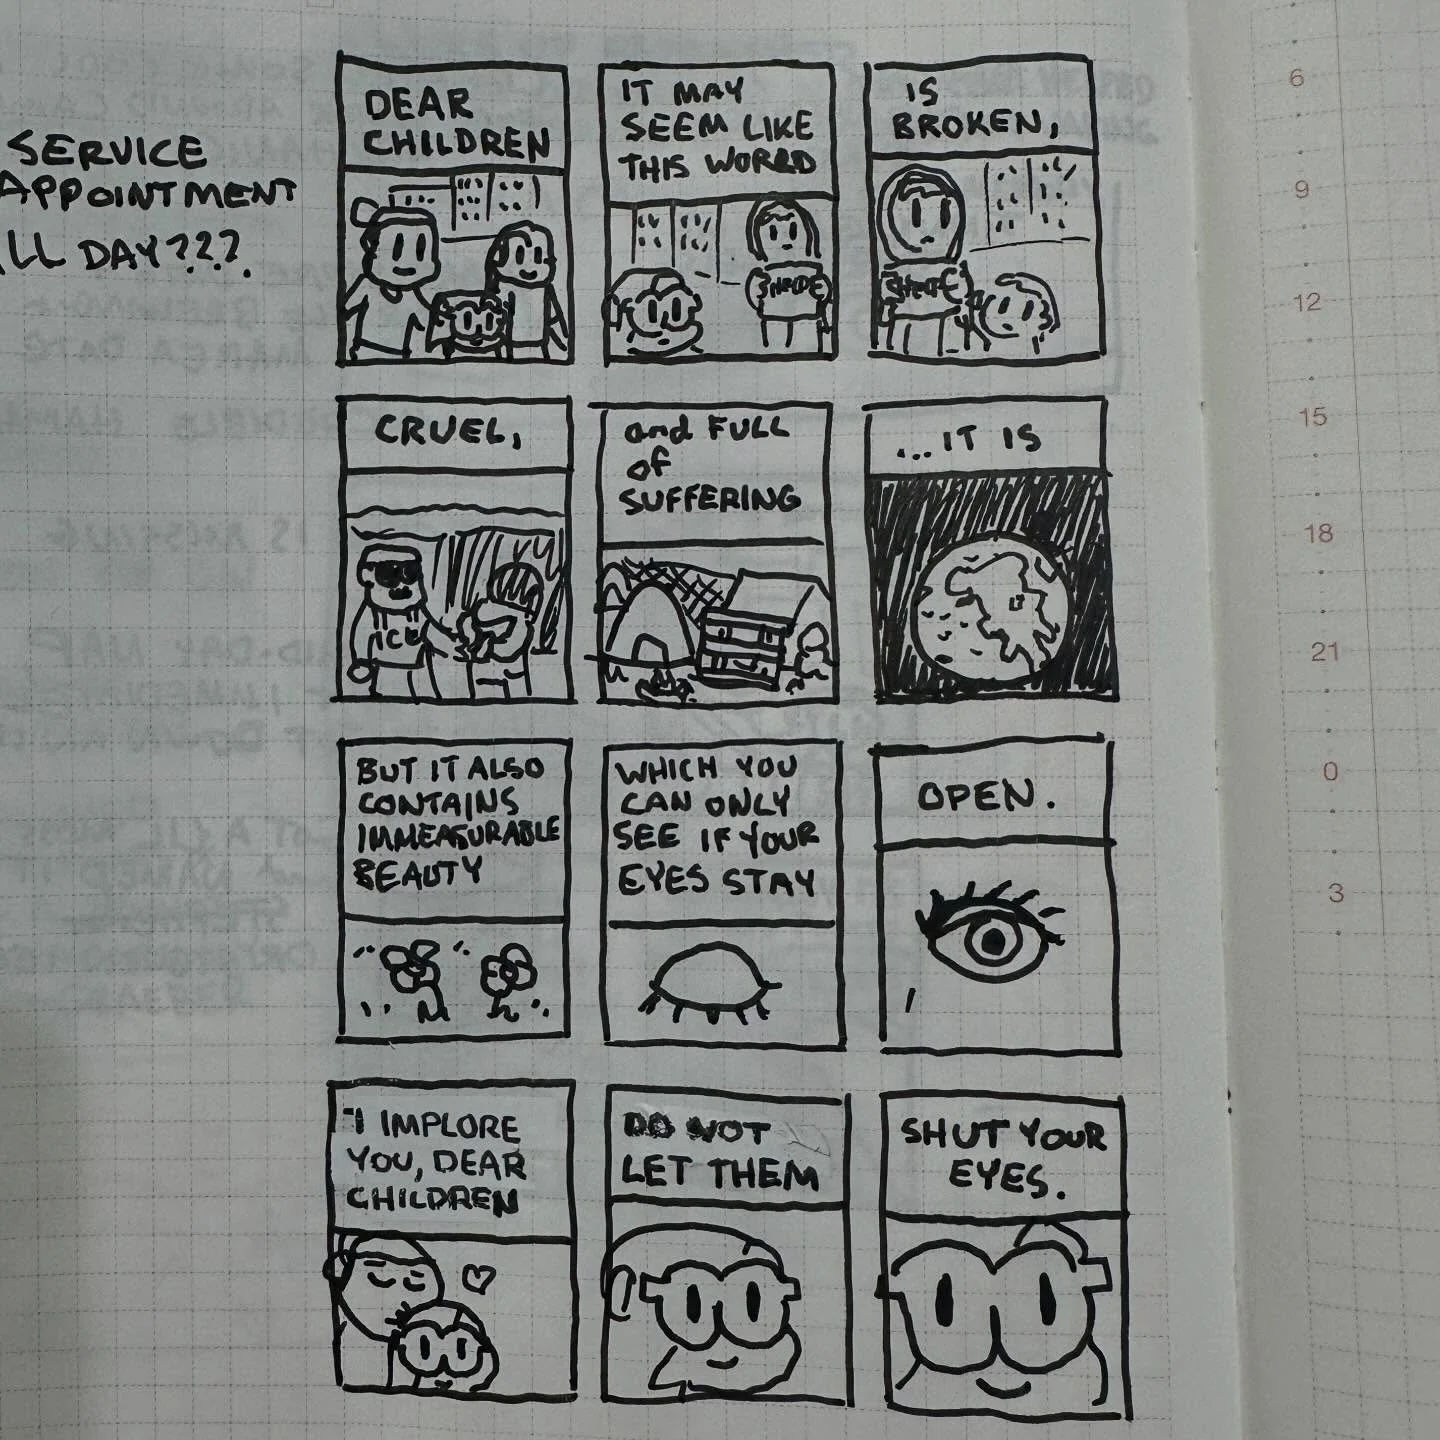 SERVICE
APPOINTMENT
ALL DAY???
DEAR
CHILDREN
IT MAY
SEEM LIKE
THIS WORLD
IS
BROKEN,
CRUEL,
ICE
and FULL
of
SUFFERING
...IT IS
BUT IT ALSO
CONTAINS
IMMEASURABLE
BEAUTY
WHICH YOU
CAN ONLY
SEE IF YOUR
EYES STAY
OPEN.
I IMPLORE
YOU, DEAR
CHILDREN
DO NOT
LET THEM
SHUT YOUR
EYES.
6
9
12
15
18
21
0
3